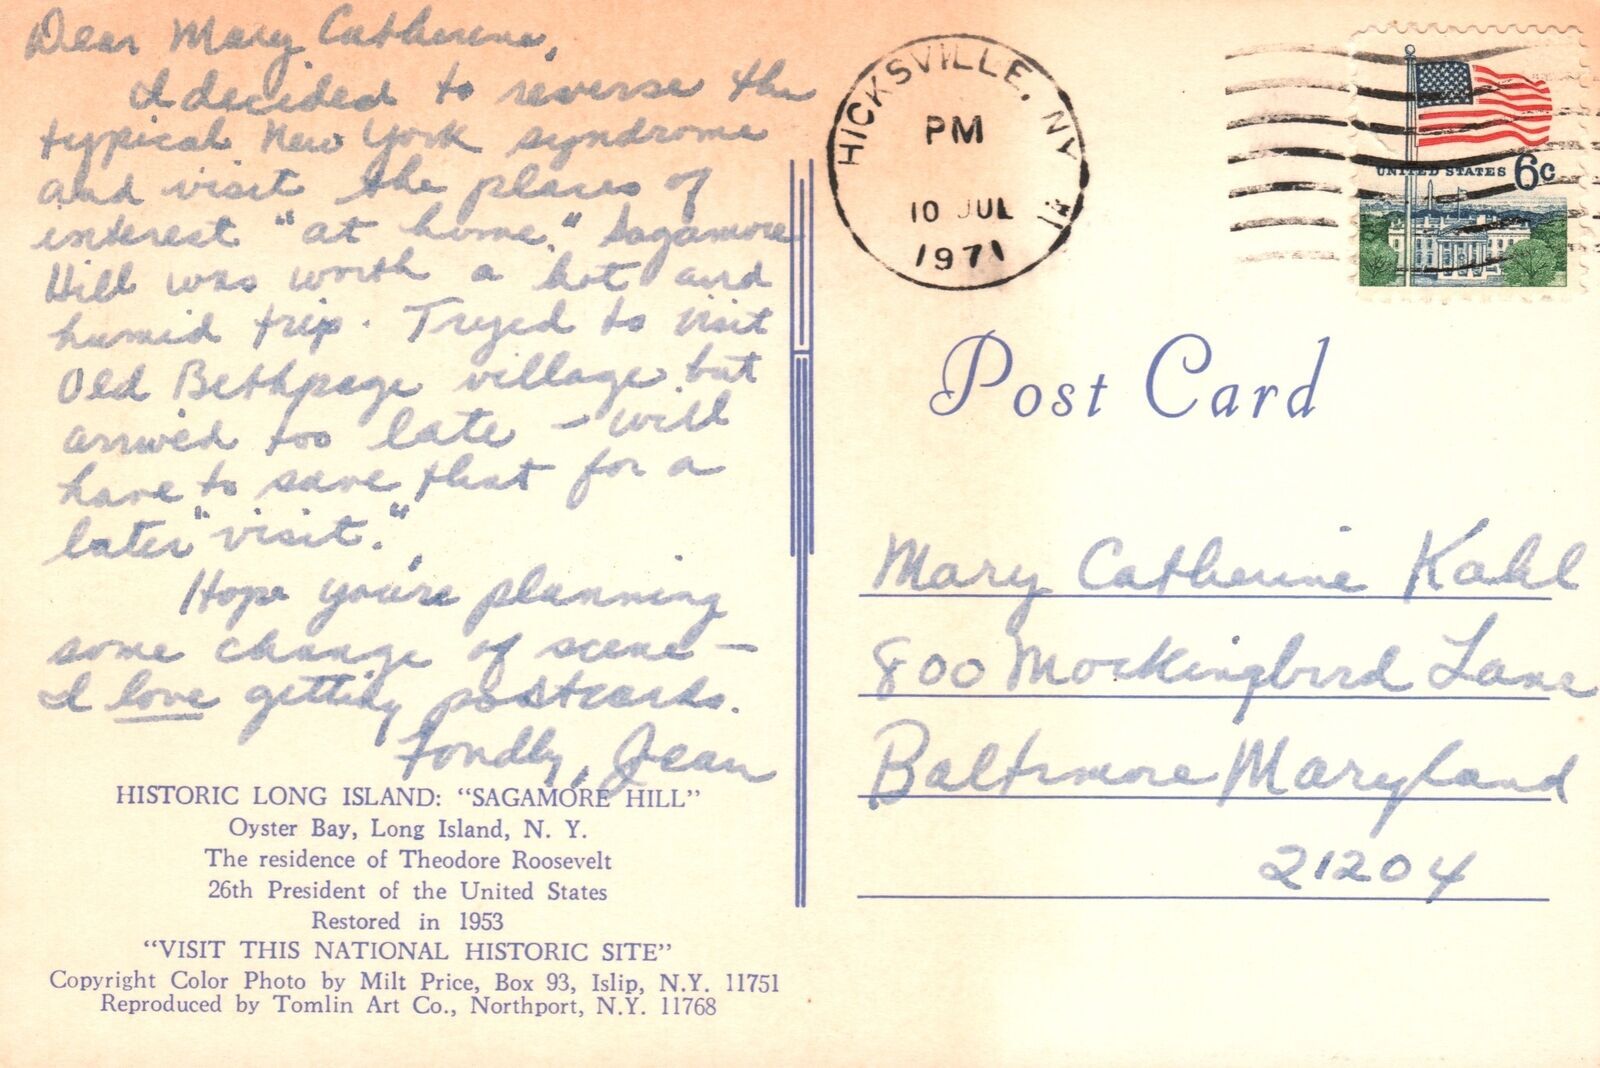 Dear Mary Catherine,
I decided to reverse the
typical New York syndrome
and visit the places of
interest "at home." Sagamore
Hill was worth a hot and
humid trip. Tryed to visit
Old Bethpage village but
arrived too late – will
have to save that for a
later "visit."
Hope you're planning
some change of scene –
I love getting postcards.
Fondly, Jean
HISTORIC LONG ISLAND: "SAGAMORE HILL"
Oyster Bay, Long Island, N. Y.
The residence of Theodore Roosevelt
26th President of the United States
Restored in 1953
"VISIT THIS NATIONAL HISTORIC SITE"
Copyright Color Photo by Milt Price, Box 93, Islip, N.Y. 11751
Reproduced by Tomlin Art Co., Northport, N.Y. 11768
HICKSVILLE, NY
PM
10 JUL
1971
UNITED STATES 6c
Post Card
Mary Catherine Kahl
800 Mockingbird Lane
Baltimore Maryland
21204